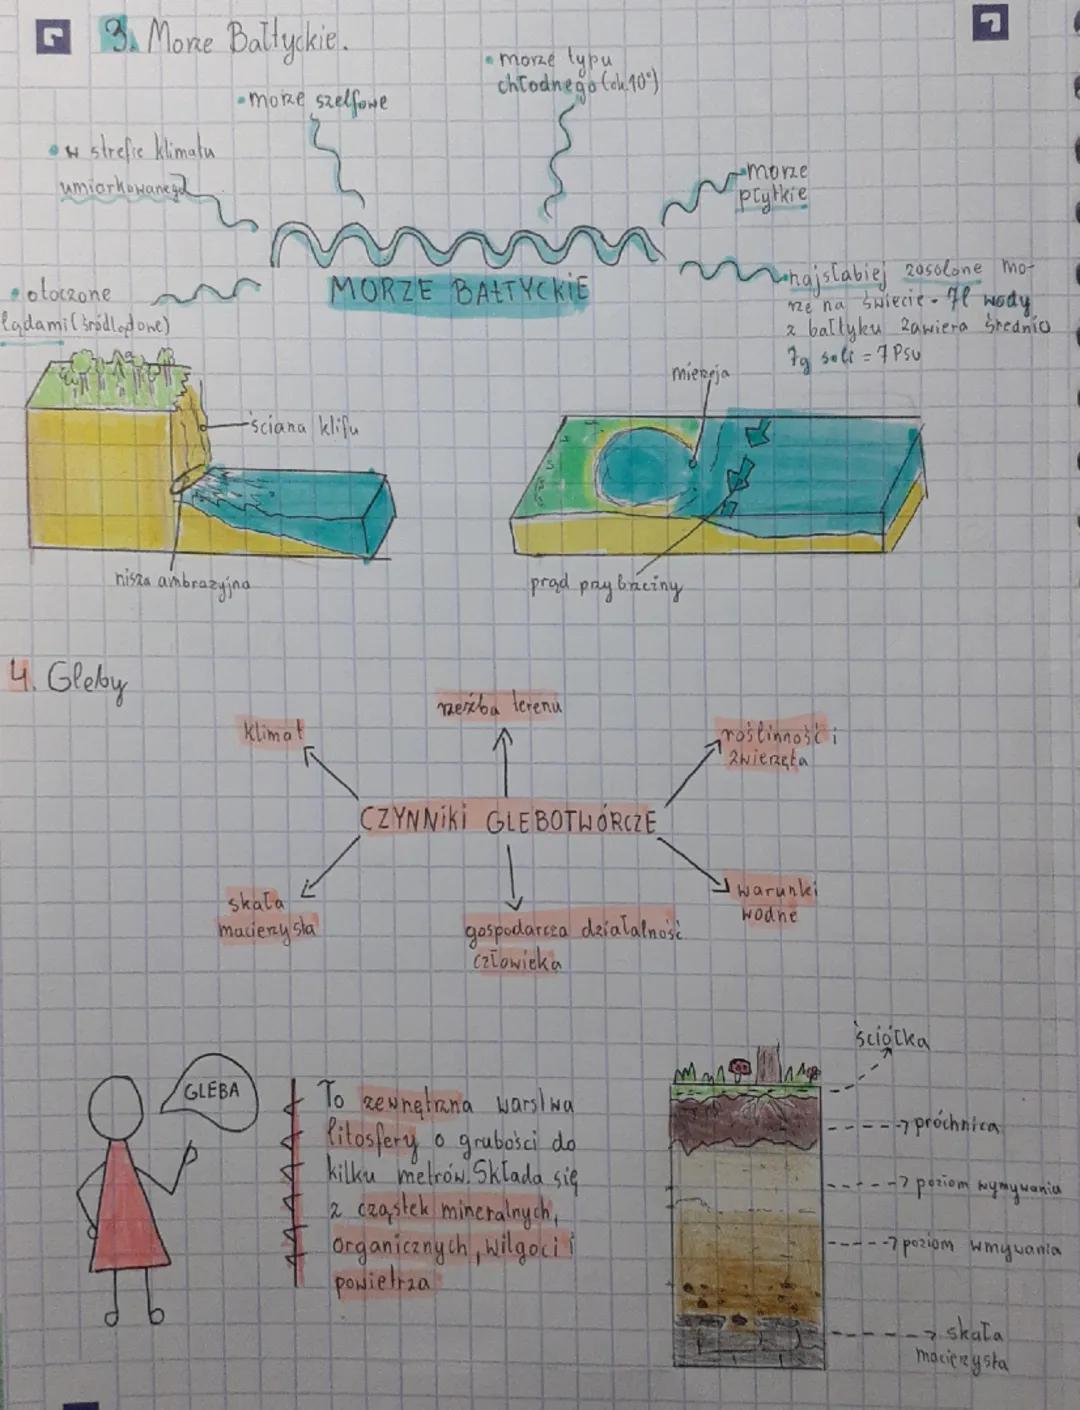 3. Morze Bałtyckie.
• morze typu
chłodnego (ok. 10°)
• morze szelfowe
• w strefie klimatu
umiarkowanego
• morze
płytkie
• otoczone
lądami (śródlądowe)
MORZE BAŁTYCKIE
• najsłabiej zasolone mo-
rze na świecie - 7l wody
z bałtyku zawiera średnio
7g soli = 7 PSU
mierzeja
ściana klifu
nisza ambrazyjna
prąd przybrzeżny
4. Gleby
rzeźba terenu
klimat
roślinność i
zwierzęta
CZYNNiKi GLEBOTWÓRCZE
skała
macierzysta
warunki
wodne
gospodarcza działalność
człowieka
ściółka
GLEBA
To zewnętrzna warstwa
litosfery o grubości do
kilku metrów. Składa się
z cząstek mineralnych,
organicznych, wilgoci i
powietrza
próchnica
poziom wymywania
poziom wmywania
skała
macierzysta